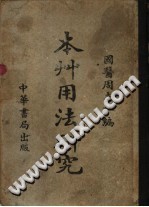 國醫周編
本艸用法研究
中華書局出版